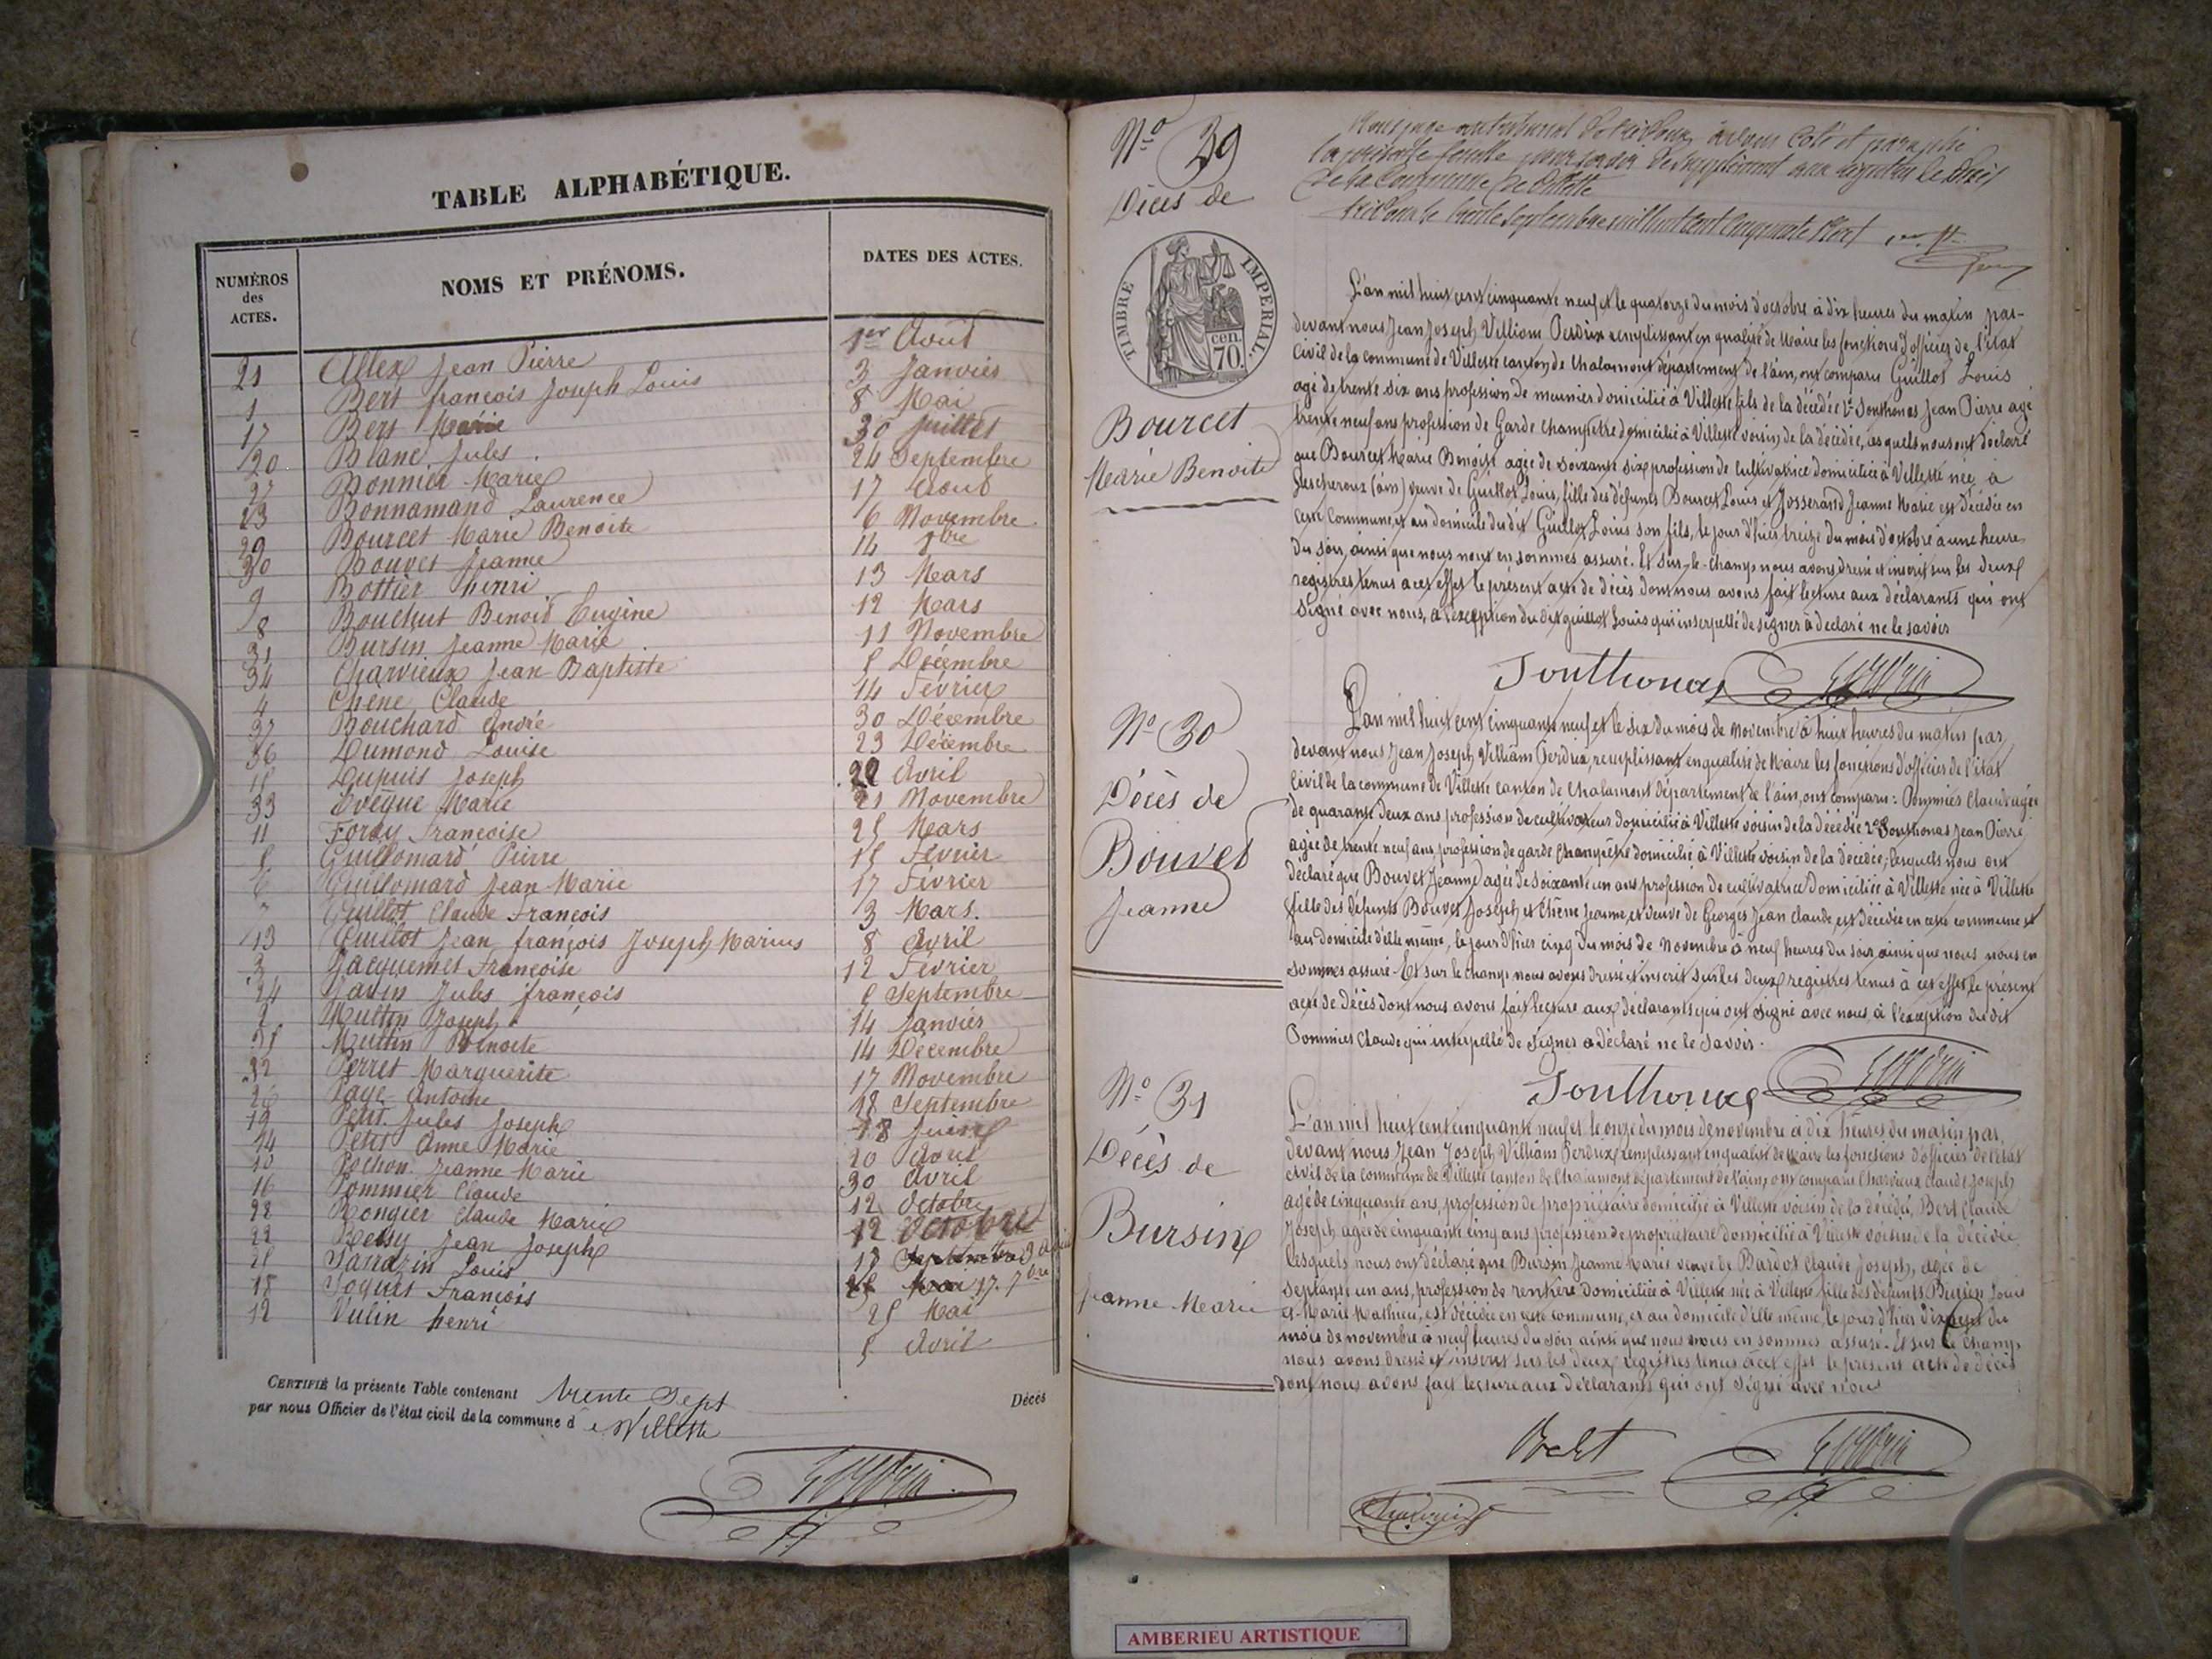 TABLE ALPHABÉTIQUE.
NUMÉROS
des
ACTES.
NOMS ET PRÉNOMS.
DATES DES ACTES.
21 Allex Jean Pierre 1er Août
1 Bert françois Joseph Louis 3 Janvier
17 Bert Marie 8 Mai
20 Blanc Jules. 30 Juillet
27 Bonnier Marie 24 Septembre
23 Bonnamand Laurence 17 Aout
29 Bourcet Marie Benoite
30 Bouvet Jeanne 6 Novembre
9 Bottier henri 13 Mars
8 Bouchut Benoit Eugène 12 Mars
31 Bursin Jeanne Marie 11 Novembre
34 Charvieux Jean-Baptiste 5 Décembre
4 Chene Claude 14 Février
37 Bouchard André 30 Décembre
36 Dumond Louise 23 Décembre
15 Dupuis Joseph 22 Avril
33 Evêque Marie 21 Novembre
11 Foray Françoise 25 Mars
5 Guillomard Pierre 15 Février
6 Guillomard Jean-Marie 17 Février
7 Guillot Claude François 3 Mars.
13 Guillot Jean françois Joseph Marius 8 Avril
3 Jacquemet Françoise 12 Février
24 Javin Jules françois 5 Septembre
2 Muttin Joseph 14 Janvier
35 Muttin Benoite 14 Décembre
32 Perret Marguerite 17 Novembre
26 Page Antoine 18 Septembre
19 Petit Jules Joseph 18 Juin
14 Petit Anne Marie
10 Pochon Jeanne Marie
16 Pommier Claude 30 Avril
28 Rongier Claude Marie 12 Octobre
22 Jean Joseph
25 Sarrazin Louis
18 Joquet François 25 Mai
12 Vulin henri 5 Avril
CERTIFIÉ la présente Table contenant trente Sept Décès
par nous Officier de l'état civil de la commune d e Villette
No 29
Décès de
TIMBRE IMPERIAL.
cen.
70.
Bourcet
Marie Benoite
de la Commune de Villette
trente Septembre mil huit cent cinquante
L'an mil huit cent cinquante neuf et le quatorze du mois d'octobre à dix heures du matin par-
devant nous Jean Joseph Villiam Perdrix remplissant en qualité de Maire les fonctions d'officier de l'état
Civil de la commune de Villette canton de Chalamont département de l'ain, ont comparu Guillot Louis
agé de trente six ans profession de meunier domicilié à Villette fils de la décédée 2° Jonthonas Jean Pierre agé
trente neuf ans profession de Garde champêtre domicilié à Villette voisin de la décédée, lesquels nous ont déclaré
que Bourcet Marie Benoite agée de soixante six profession de cultivatrice domiciliée à Villette née à
Jescheroux (ain) veuve de Guillot Louis, fille des défunts Bourcet Louis et Josserand Jeanne Marie est décédée en
cette Commune, et au domicile du dit Guillot Louis son fils, le jour d'hier treize du mois d'octobre à une heure
du soir, ainsi que nous nous en sommes assuré. Et sur-le-champ nous avons dressé et inscrit sur les deux
registres tenus a cet effet le présent acte de décès dont nous avons fait lecture aux déclarants qui ont
Signé avec nous, à l'exception du dit guillot Louis qui interpellé de signer à declaré ne le savoir
Jonthonas
No 30
Décès de
Bouvet
Jeanne
L'an mil huit cent cinquante neuf et le six du mois de Novembre à huit heures du matin par
devant nous Jean Joseph Villiam Perdrix, remplissant en qualité de Maire les fonctions d'officier de l'état
Civil de la commune de Villette canton de Chalamont département de l'ain, ont comparu: Pommier Claude agé
de quarante deux ans profession de cultivateur domicilié à Villette voisin de la décédée 2° Jonthonas Jean Pierre
agée de trente neuf ans profession de garde Champêtre domicilié à Villette voisin de la décédée, lesquels nous ont
déclaré que Bouvet Jeanne agée de soixante un ans profession de cultivatrice domiciliée à Villette née à Villette
fille des défunts Bouvet Joseph et Chêne Jeanne, et veuve de Georges Jean Claude, est décédée en cette commune et
au domicile d'elle même, le jour d'hier cinq du mois de Novembre à neuf heures du soir, ainsi que nous nous en
sommes assuré. Et sur le champ nous avons dressé et inscrit sur les deux registres tenus à cet effet, le présent
acte de Décès dont nous avons fait lecture aux déclarants qui ont Signé avec nous, à l'exception du dit
Pommier Claude qui interpellé de Signer a déclaré ne le Savoir.
Jonthonas
No 31
Décès de
Bursin
Jeanne Marie
L'an mil huit cent cinquante neuf et le onze du mois de novembre à dix heures du matin par
devant nous Jean Joseph Villiam Perdrix remplissant en qualité de Maire les fonctions d'officier de l'état
civil de la commune de Villette canton de Chalamont département de l'ain, ont comparu Charvieux Claude Joseph
agé de cinquante ans, profession de propriétaire domicilié à Villette voisin de la décédé, Bert Claude
Joseph agé de cinquante cinq ans profession de propriétaire domicilié à Villette voisin de la décédée
lesquels nous ont déclaré que Bursin Jeanne Marie veuve de Bardot Claude Joseph, agée de
septante un ans, profession de rentière domiciliée à Villette née à Villette fille des défunts Bursin Louis
et Marie Mathieu, est décédée en cette commune, et au domicile d'elle même, le jour d'hier dix du
mois de novembre à neuf heures du soir ainsi que nous nous en sommes assuré. Et sur le champ
nous avons dressé et inscrit sur les deux registres tenus à cet effet le présent acte de décès
dont nous avons fait lecture aux déclarants qui ont signé avec nous
AMBERIEU ARTISTIQUE